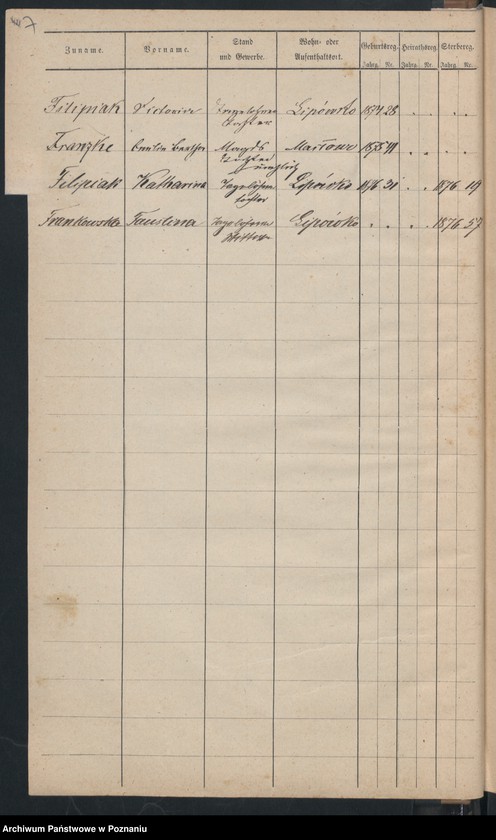 7
Zuname. Vorname. Stand und Gewerbe. Wohn- oder Aufenthaltsort. Geburtsreg. Heirathsreg. Sterbereg.
Jahrg. Nr. Jahrg. Nr. Jahrg. Nr.
Filipiak Victoria Tagelöhner Tochter Lipówko 1874 28
Franzke Bertha Magd Tochter unehelich 1875 41
Filipiak Katharina Tagelöhner Tochter Lipówko 1876 31 1876 19
Frankowska Tagelöhner Lipówko 1876 57
Archiwum Państwowe w Poznaniu